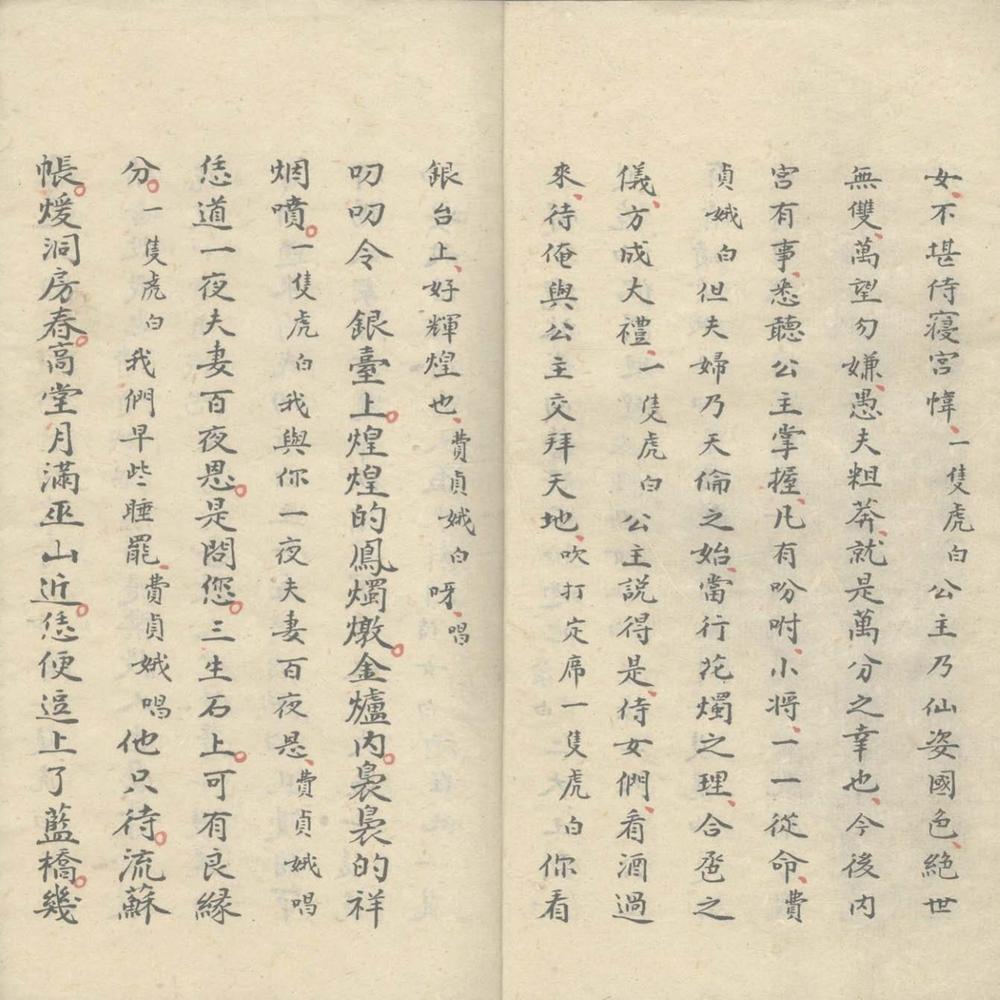 女、不堪侍寢宮幃、一隻虎白公主乃仙姿國色、絕世
無雙、萬望勿嫌、愚夫粗莽、就是萬分之幸也、今後內
宮有事、悉聽公主掌握、凡有吩咐、小將、一一從命、費
貞娥白但夫婦乃天倫之始、當行花燭之理、合巹之
儀、方成大禮、一隻虎白公主說得是、侍女們、看酒過
來、待俺與公主交拜天地、吹打定席一隻虎白你看
銀台上、好輝煌也、費貞娥白呀、唱
叨叨令銀臺上。煌煌的鳳燭燉。金爐內。裊裊的祥
烟噴。一隻虎白我與你一夜夫妻百夜恩、費貞娥唱
恁道一夜夫妻百夜恩。是問您。三生石上。可有良緣
分。一隻虎白我們早些睡罷、費貞娥唱他只待。流蘇
帳。煖洞房春。高堂月滿巫山近。恁便逗上了藍橋。幾